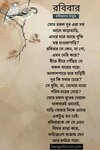 রবিবার
রবীন্দ্রনাথ ঠাকুর
সোম মঙ্গল বুধ এরা সব
আসে তাড়াতাড়ি,
এদের ঘরে আছে বুঝি
মস্ত হাওয়াগাড়ি?
রবিবার সে কেন, মা গো,
এমন দেরি করে?
ধীরে ধীরে পৌঁছয় সে
সকল বারের পরে।
আকাশপারে তার বাড়িটি
দূর কি সবার চেয়ে?
সে বুঝি, মা, তোমার মতো
গরিব-ঘরের মেয়ে?
সোম মঙ্গল বুধের খেয়াল
থাকবারই জন্যেই,
বাড়ি-ফেরার দিকে ওদের
একটুও মন নেই।
রবিবারকে কে যে এমন
বিষম তাড়া করে,
ঘণ্টাগুলো বাজায় যেন
আধ ঘণ্টার পরে।